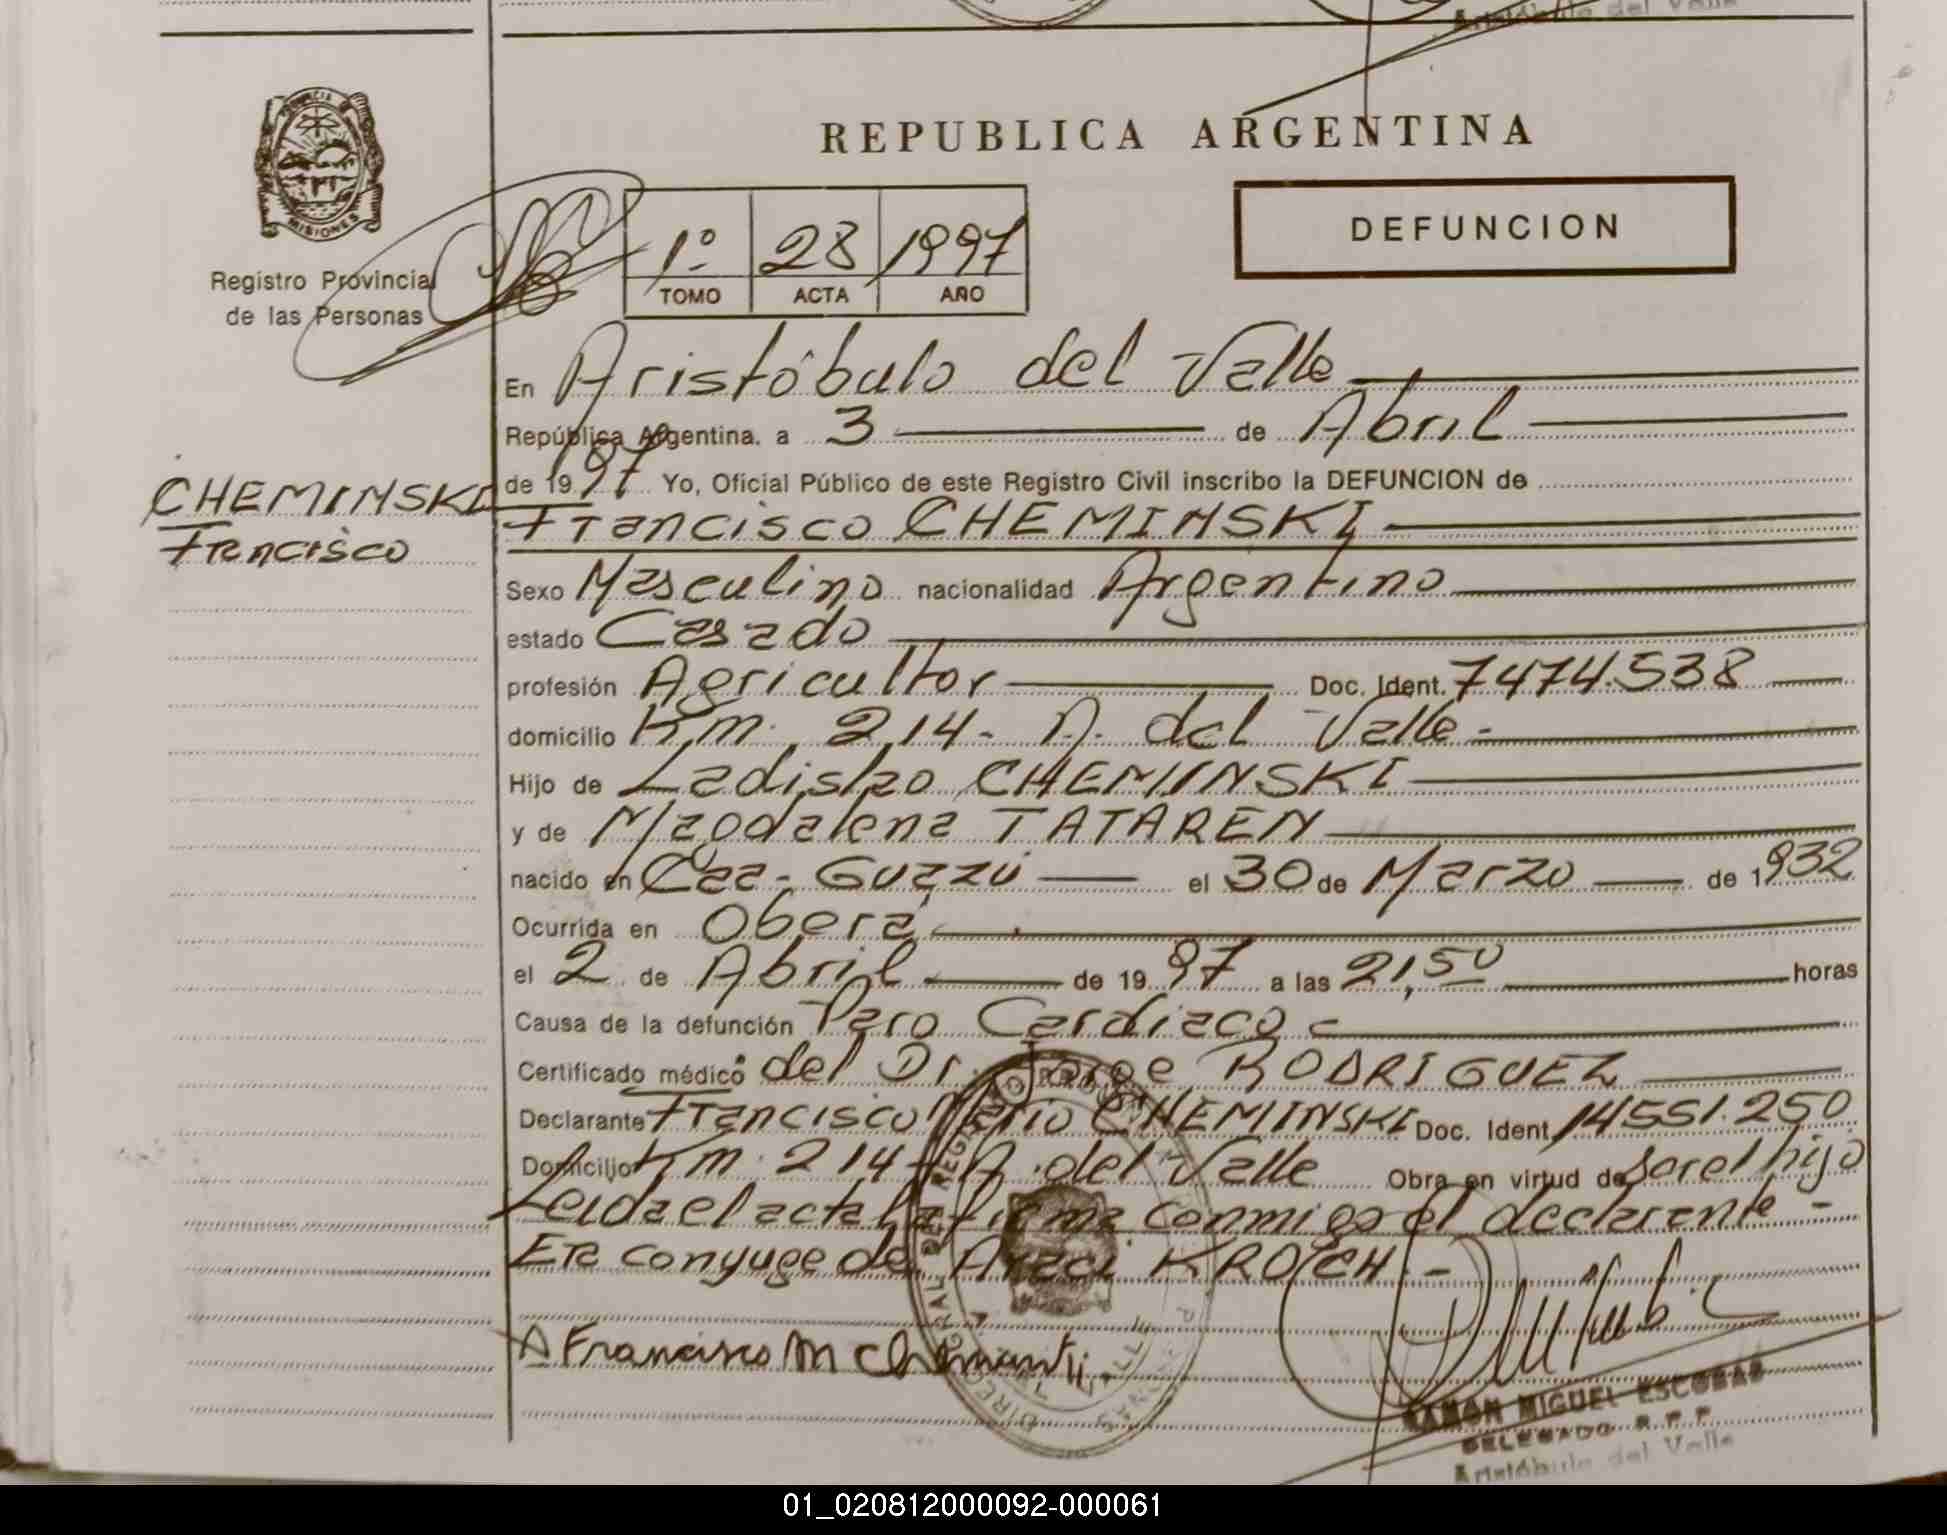 Aristóbulo del Valle
REPUBLICA ARGENTINA
PROVINCIA
MISIONES
Registro Provincial
de las Personas
1º 28 1997
TOMO ACTA AÑO
DEFUNCION
En Aristóbulo del Valle
República Argentina, a 3 de Abril
de 1997 Yo, Oficial Público de este Registro Civil inscribo la DEFUNCION de
CHEMINSKI
Francisco
Francisco CHEMINSKI
Sexo Masculino nacionalidad Argentino
estado Casado
profesión Agricultor Doc. Ident. 7474.538
domicilio Km. 214- A. del Valle-
Hijo de Ladislao CHEMINSKI
y de Magdalena TATAREN
nacido en Caa-Guazzú el 30 de Marzo de 1932
Ocurrida en Oberá
el 2 de Abril de 1997 a las 21,50 horas
Causa de la defunción Paro Cardiaco
Certificado médico del Dr. Jorge RODRIGUEZ
Declarante Francisco Mario CHEMINSKI Doc. Ident. 14551.250
Domicilio Km. 214- A. del Valle Obra en virtud de ser el hijo
Leida el acta la firma conmigo el declarante-
Era conyuge de KROCH.-
A Francisco M Cheminski
RAMON MIGUEL ESCOBAR
DELEGADO R.P.P.
Aristóbulo del Valle
01_020812000092-000061